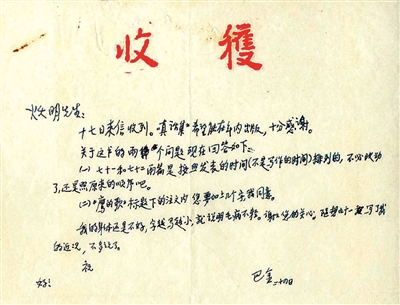 收穫
炎明先生：
十七日来信收到。《真话集》希望能在年内出版，十分感谢。
关于这书的两个问题现在回答如下：
(一) 七十一和七十二两篇是按照发表的时间(不是写作的时间)排列的，不必改动
了，还是照原来的顺序吧。
(二)《鹰的歌》标题下的注文内您要加上几个字我同意。
我的身体还是不好，字越写越小，就说明毛病不轻。谢谢您的关心。 写了我
的近况，不多谈了。
祝
好！
巴金